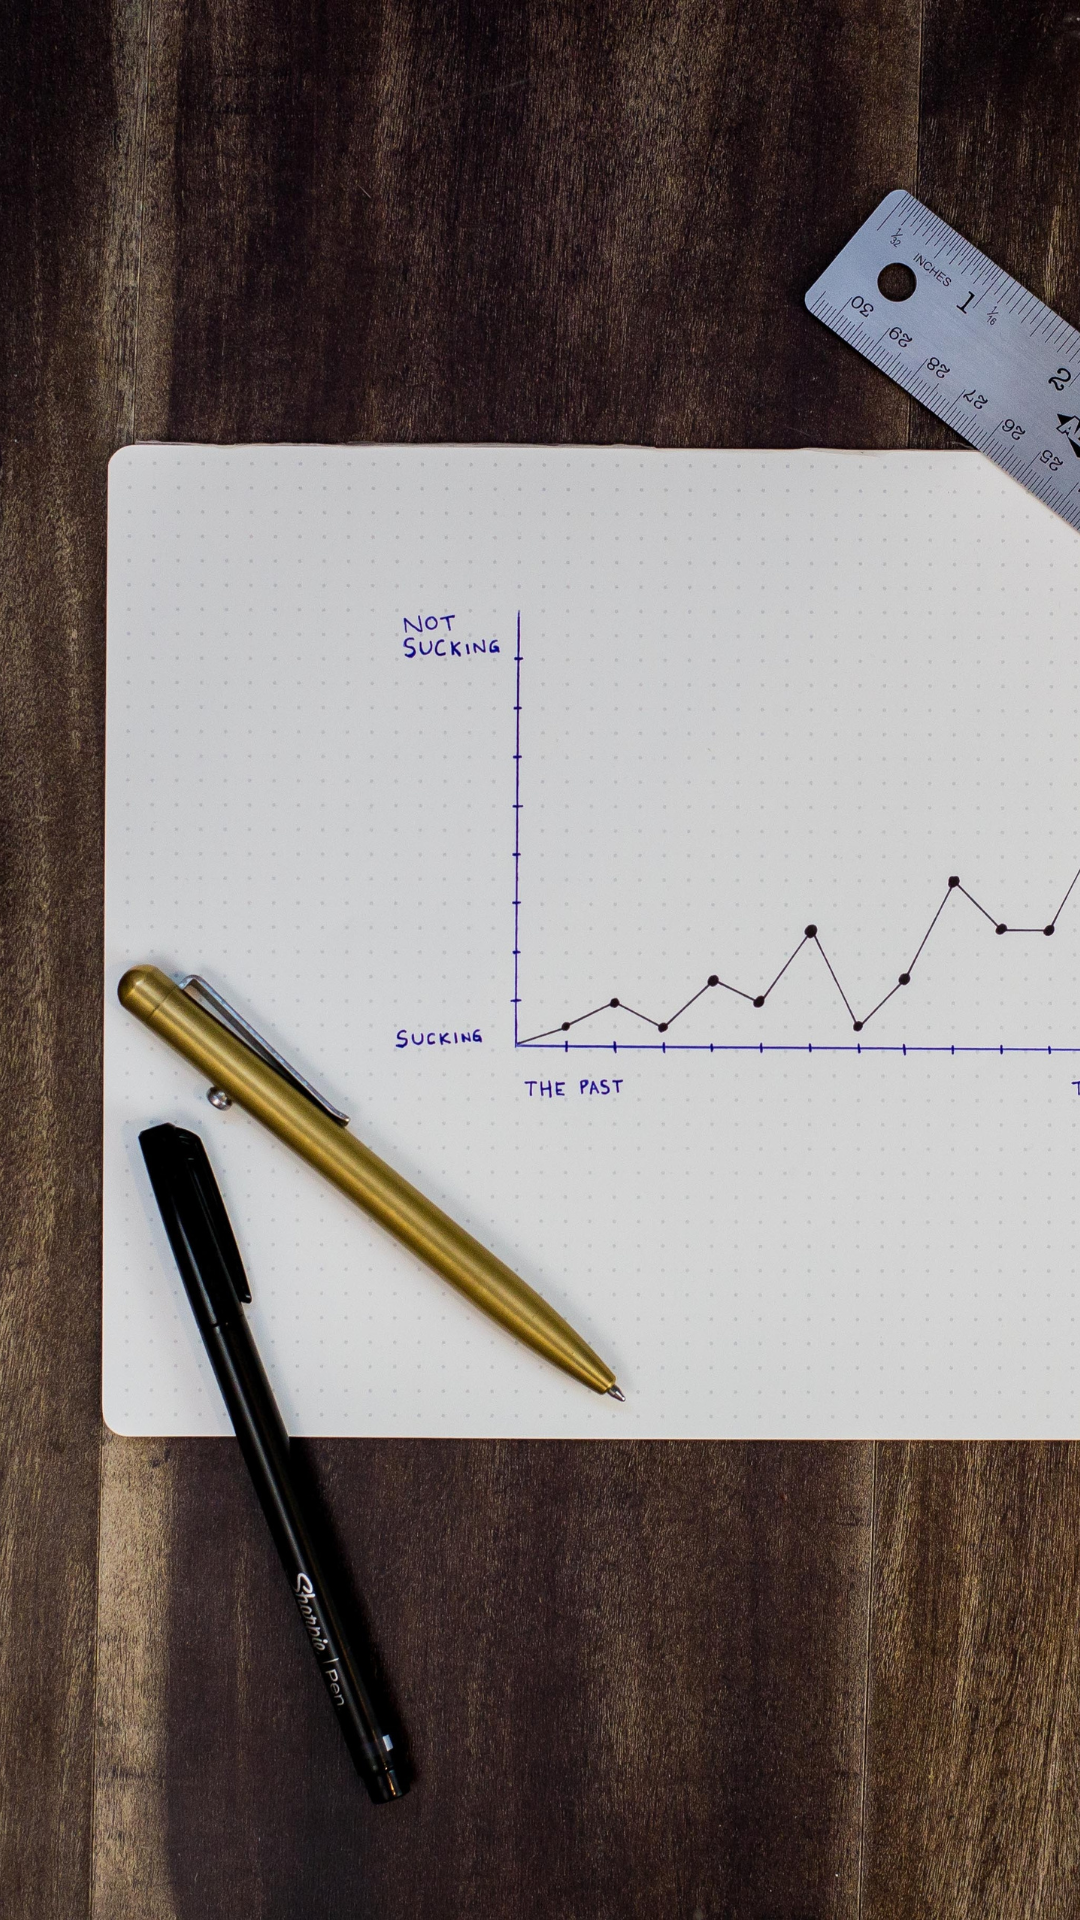 1/32
INCHES
1
1/16
2
30
29
28
27
26
25
NOT
SUCKING
SUCKING
THE PAST
T
Sharpie | Pen